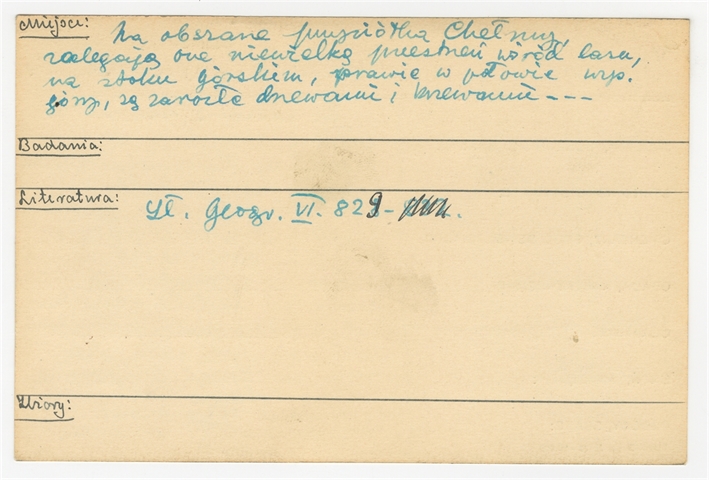 Miejsce: na obszarze przysiółka Chełmy,
zalegają one niewielką przestrzeń wśród lasu,
na stoku górskim, prawie w połowie wys.
góry, są zarosłe drzewami i krzewami ---
Badania:
Literatura: Sł. Geogr. VI. 829
Zbiory: